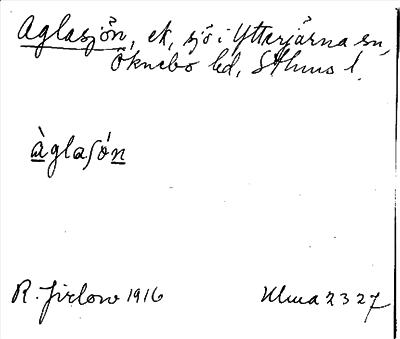 Aglasjön, ek, sjö i Ytterjärna sn,
Öknebo hd, Sthms l.
àglaſón
R. Jirlow 1916
Ulma 2327